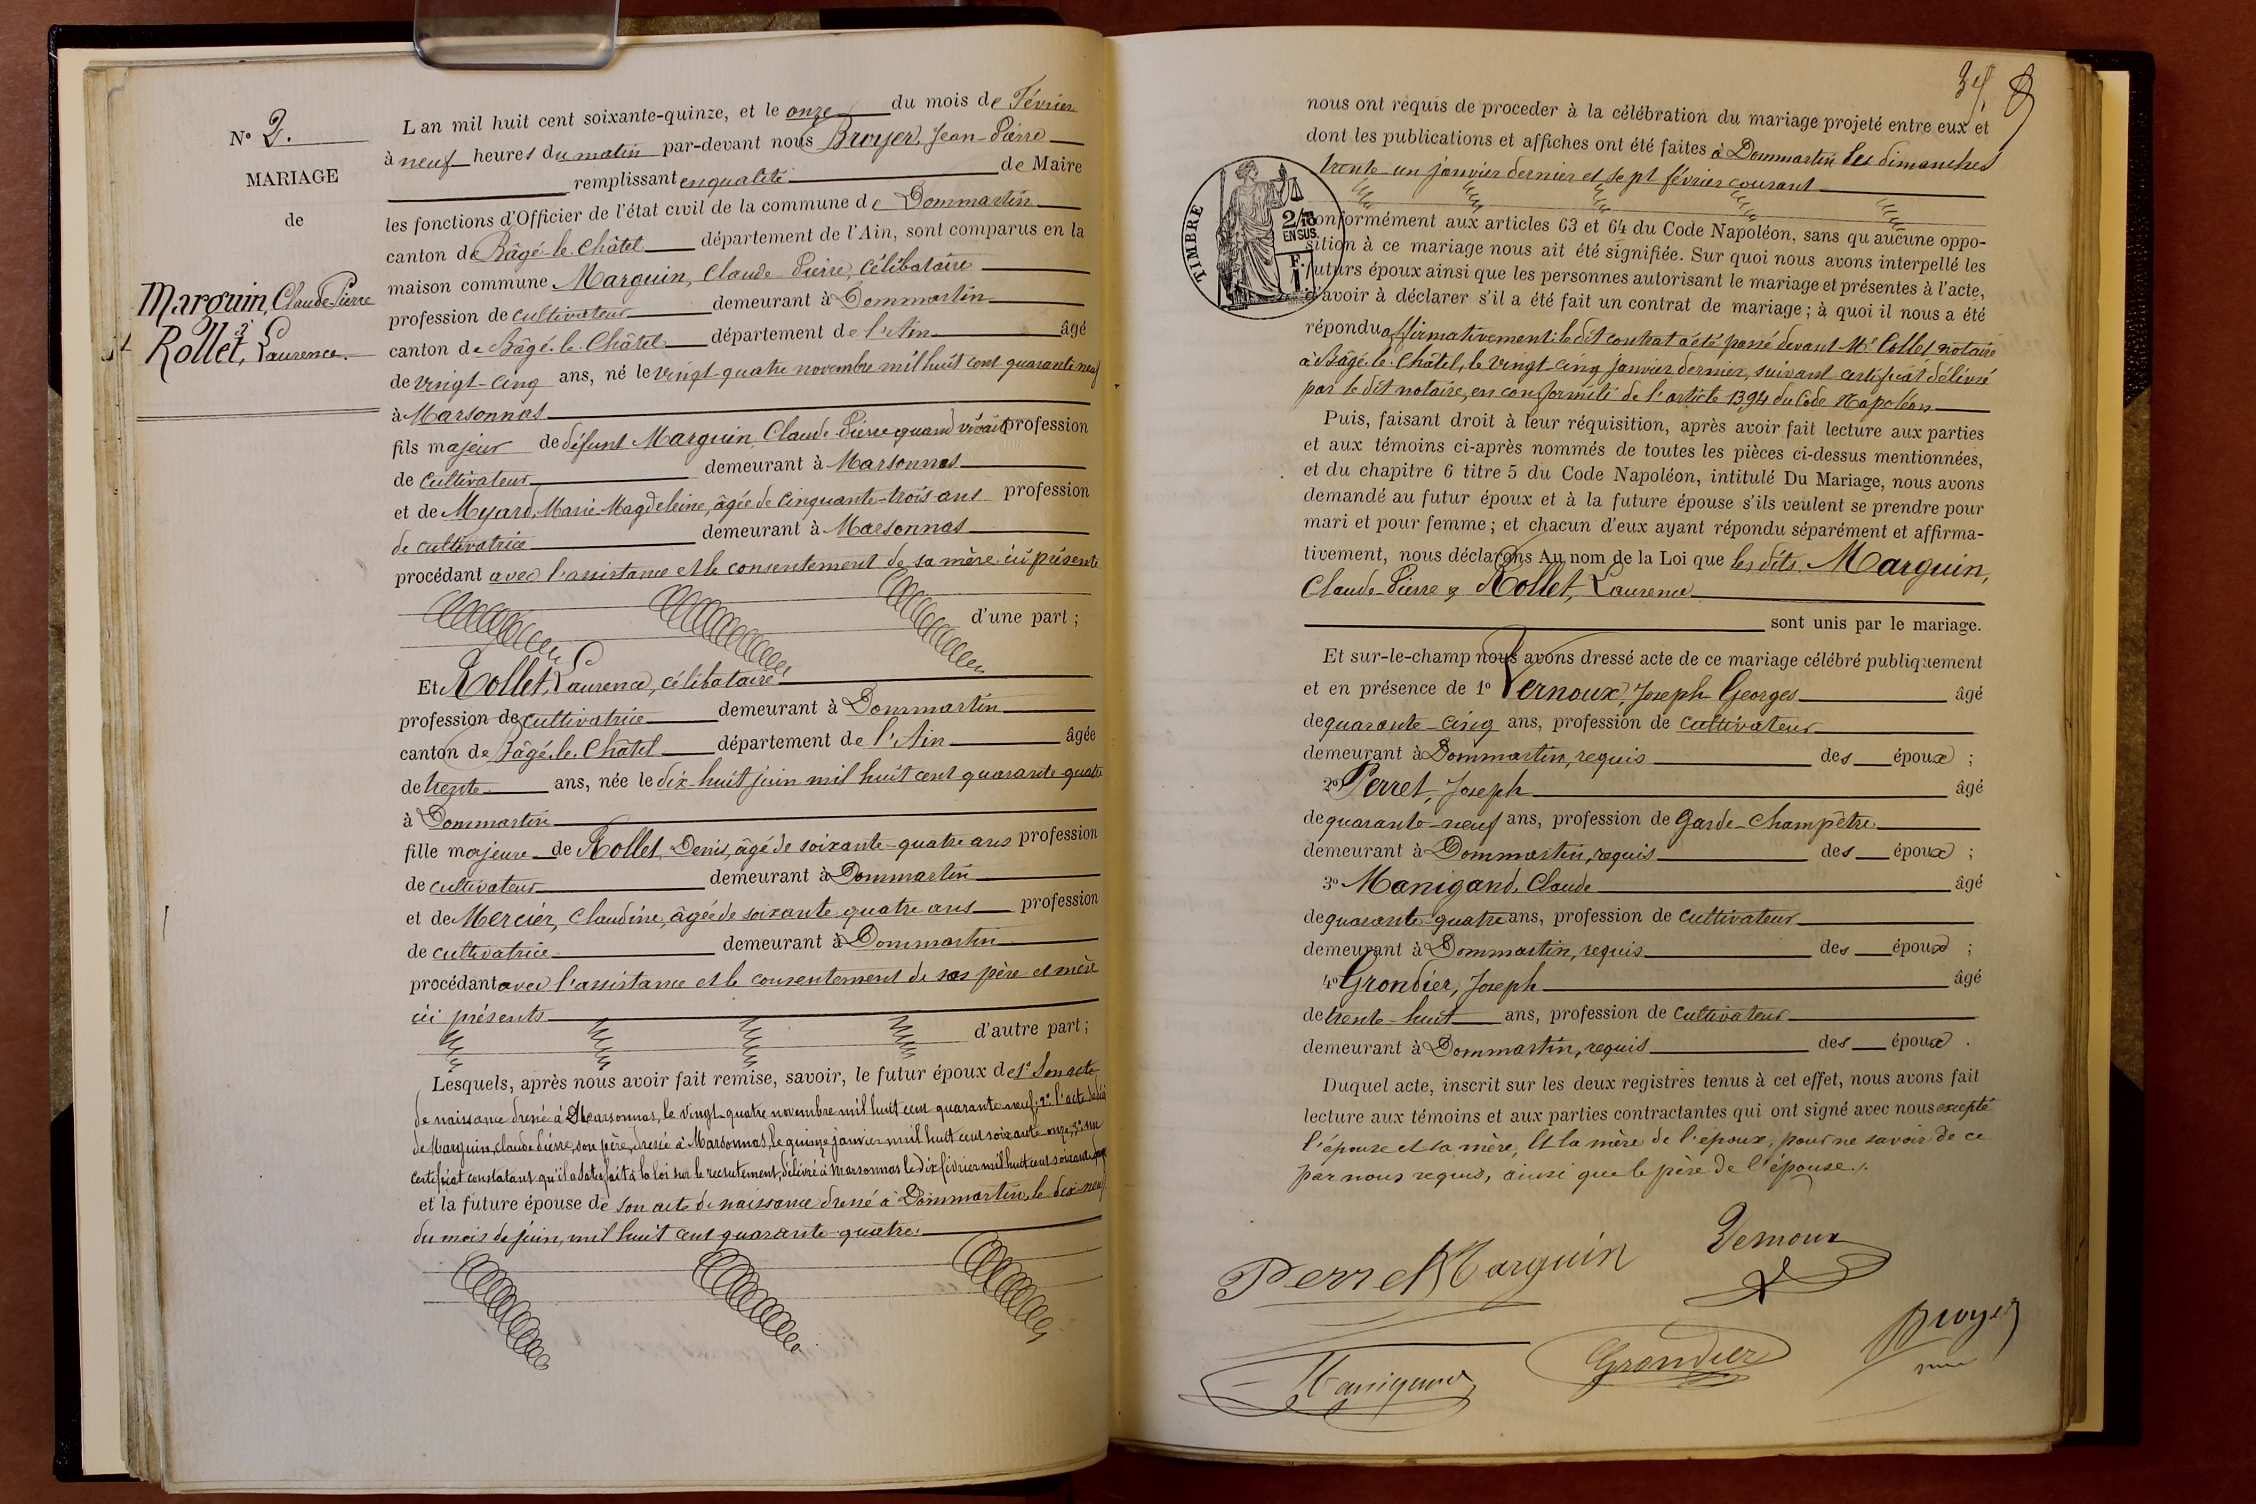 N° 2.
MARIAGE
de
Marguin, Claude-Pierre
et
Rollet, Laurence.
L'an mil huit cent soixante-quinze, et le onze du mois de Février
à neuf heures du matin par-devant nous Broyer, Jean-Pierre
remplissant en qualité de Maire
les fonctions d'Officier de l'état civil de la commune de Dommartin
canton de Bâgé-le-Châtel département de l'Ain, sont comparus en la
maison commune Marguin, Claude-Pierre, célibataire
profession de cultivateur demeurant à Dommartin
canton de Bâgé-le-Châtel département de l'Ain âgé
de vingt-cinq ans, né le vingt-quatre novembre mil huit cent quarante-neuf
à Marsonnas
fils majeur de défunt Marguin Claude-Pierre quand vivait profession
de cultivateur demeurant à Marsonnas
et de Myard, Marie-Magdeleine, âgée de cinquante-trois ans profession
de cultivatrice demeurant à Marsonnas
procédant avec l'assistance et le consentement de sa mère ici présente
d'une part ;
Et Rollet, Laurence, célibataire
profession de cultivatrice demeurant à Dommartin
canton de Bâgé-le-Châtel département de l'Ain âgée
de trente ans, née le dix-huit juin mil huit cent quarante-quatre
à Dommartin
fille majeure de Rollet, Denis, âgé de soixante-quatre ans profession
de cultivateur demeurant à Dommartin
et de Mercier, Claudine, âgée de soixante quatre ans profession
de cultivatrice demeurant à Dommartin
procédant avec l'assistance et le consentement de ses père et mère
ici présents
d'autre part ;
Lesquels, après nous avoir fait remise, savoir, le futur époux de 1° Son acte
de naissance dressé à Marsonnas, le vingt-quatre novembre mil huit cent quarante neuf; 2° l'acte de décès
de Marguin, Claude Pierre, son père, dressé à Marsonnas, le quinze janvier mil huit cent soixante-onze; 3° un
certificat constatant qu'il a satisfait à la loi sur le recrutement, délivré à Marsonnas le dix février mil huit cent soixante quinze
et la future épouse de son acte de naissance dressé à Dommartin, le dix-neuf
du mois de juin, mil huit cent quarante-quatre.
34.
nous ont requis de proceder à la célébration du mariage projeté entre eux et
dont les publications et affiches ont été faites à Dommartin les dimanches
trente-un janvier dernier et sept février courant
TIMBRE
2/10
EN SUS.
F.
1.
conformément aux articles 63 et 64 du Code Napoléon, sans qu'aucune oppo-
sition à ce mariage nous ait été signifiée. Sur quoi nous avons interpellé les
futurs époux ainsi que les personnes autorisant le mariage et présentes à l'acte,
d'avoir à déclarer s'il a été fait un contrat de mariage ; à quoi il nous a été
répondu affirmativement: le dit contrat a été passé devant Me Collet notaire
à Bâgé-le-Châtel, le vingt-cinq janvier dernier, suivant certificat délivré
par le dit notaire, en conformité de l'article 1394 du Code Napoléon
Puis, faisant droit à leur réquisition, après avoir fait lecture aux parties
et aux témoins ci-après nommés de toutes les pièces ci-dessus mentionnées,
et du chapitre 6 titre 5 du Code Napoléon, intitulé Du Mariage, nous avons
demandé au futur époux et à la future épouse s'ils veulent se prendre pour
mari et pour femme ; et chacun d'eux ayant répondu séparément et affirma-
tivement, nous déclarons Au nom de la Loi que les dits Marguin,
Claude-Pierre & Rollet, Laurence
sont unis par le mariage.
Et sur-le-champ nous avons dressé acte de ce mariage célébré publiquement
et en présence de 1° Vernoux, Joseph Georges âgé
de quarante-cinq ans, profession de cultivateur
demeurant à Dommartin, requis des époux ;
2° Perret, Joseph âgé
de quarante-neuf ans, profession de Garde-Champêtre
demeurant à Dommartin, requis des époux ;
3° Manigand, Claude âgé
de quarante-quatre ans, profession de cultivateur
demeurant à Dommartin, requis des époux ;
4° Grondier, Joseph âgé
de trente-huit ans, profession de cultivateur
demeurant à Dommartin, requis des époux .
Duquel acte, inscrit sur les deux registres tenus à cet effet, nous avons fait
lecture aux témoins et aux parties contractantes qui ont signé avec nous excepté
l'épouse et sa mère, et la mère de l'époux, pour ne savoir de ce
par nous requis, ainsi que le père de l'épouse.
Perret Marguin Vernoux
Manigand Grondier Broyer